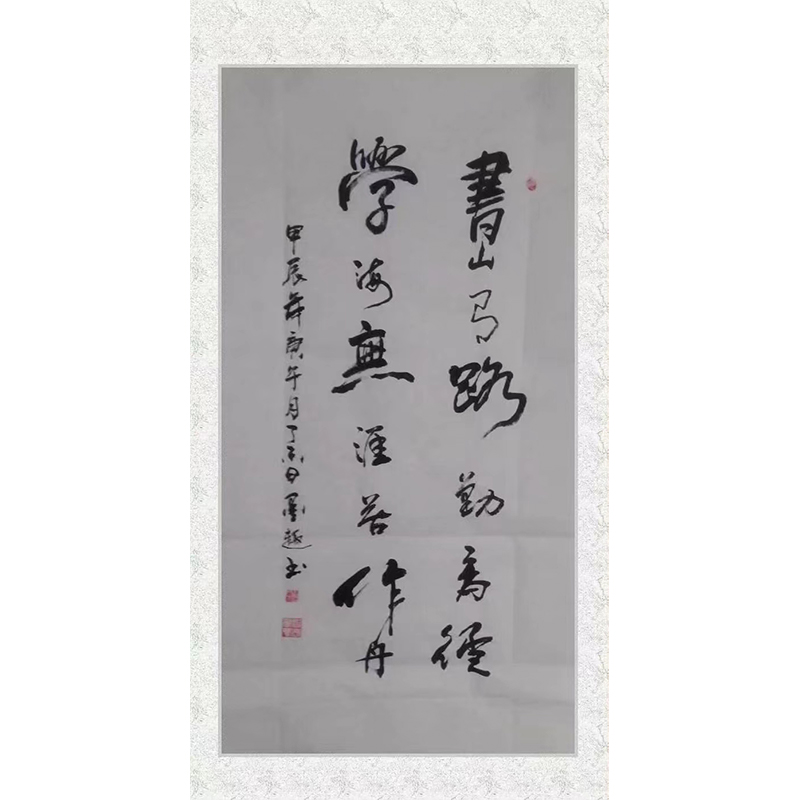 書山有路勤為徑
學海無涯苦作舟
甲辰年庚午月丁未日墨越书